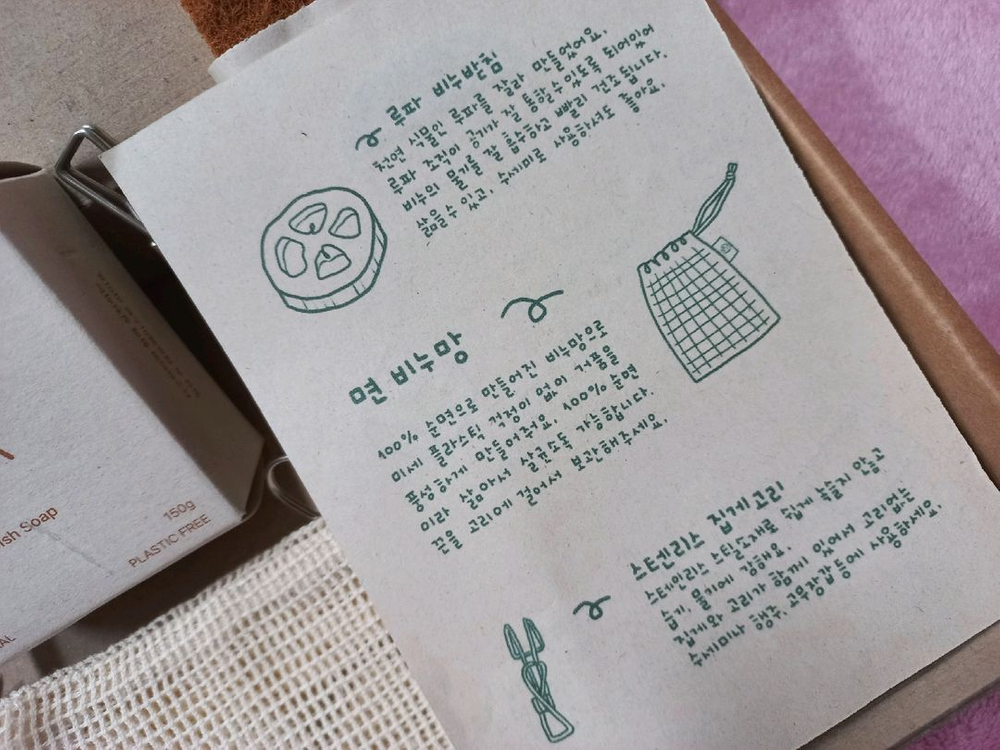 루파 비누받침
천연 식물인 루파를 잘라 만들었어요.
루파 조직이 공기가 잘 통할수있도록 되어있어
비누의 물기를 잘 흡수하고 빨리 건조됩니다.
삶을수 있고, 수세미로 사용하셔도 좋아요.
면 비누망
100% 순면으로 만들어진 비누망으로
미세 플라스틱 걱정이 없이 거품을
풍성하게 만들어줘요. 100% 순면
이라 삶아서 살균소독 가능합니다.
끈을 고리에 걸어서 보관해주세요.
스텐리스 집게고리
스테인리스 스틸소재로 쉽게 녹슬지 않고
습기, 물기에 강해요.
집게와 고리가 함께 있어서 고리없는
수세미나 행주, 고무장갑등에 사용하세요.
ish Soap
150g
PLASTIC FREE